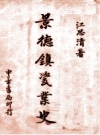 江思清著
景德鎮瓷業史
中華書局印行